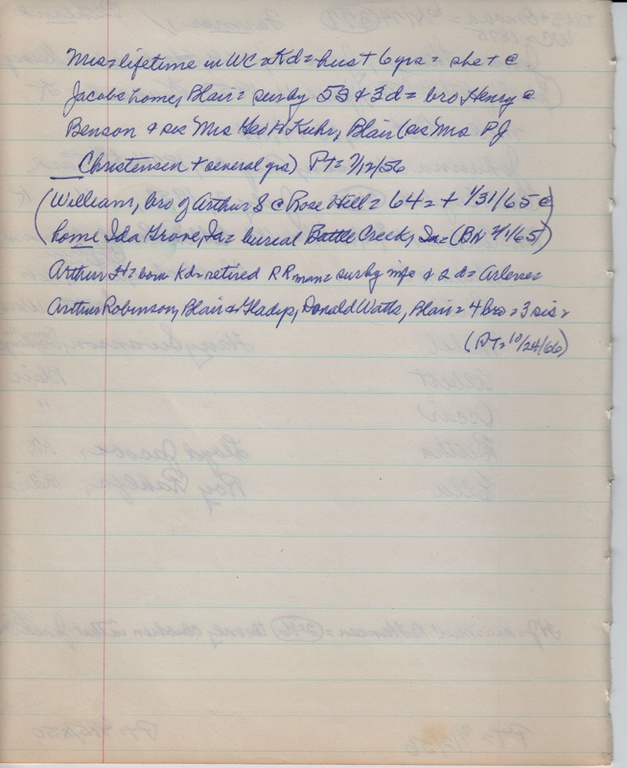 Mrs = lifetime in WC = Kd = hus + 6 yrs = she + @
Jacobs home, Blair = surby 5S & 3d = bro Henry @
Benson & sis Mrs Geo H Kuhr, Blair (sis Mrs P J
Christensen + several yrs) PT = 7/12/56
(William, bro of Arthur S @ Rose Hill = 64 = + 1/31/65 @
home Ida Grove, Ia = burial Battle Creek, Ia = (BN 2/1/65)
Arthur H = born Kd = retired RR man = surby wife & 2 d = Arlene =
Arthur Robinson, Blair & Gladys, Donald Watts, Blair = 4 bro = 3 sis =
(PT = 10/24/66)